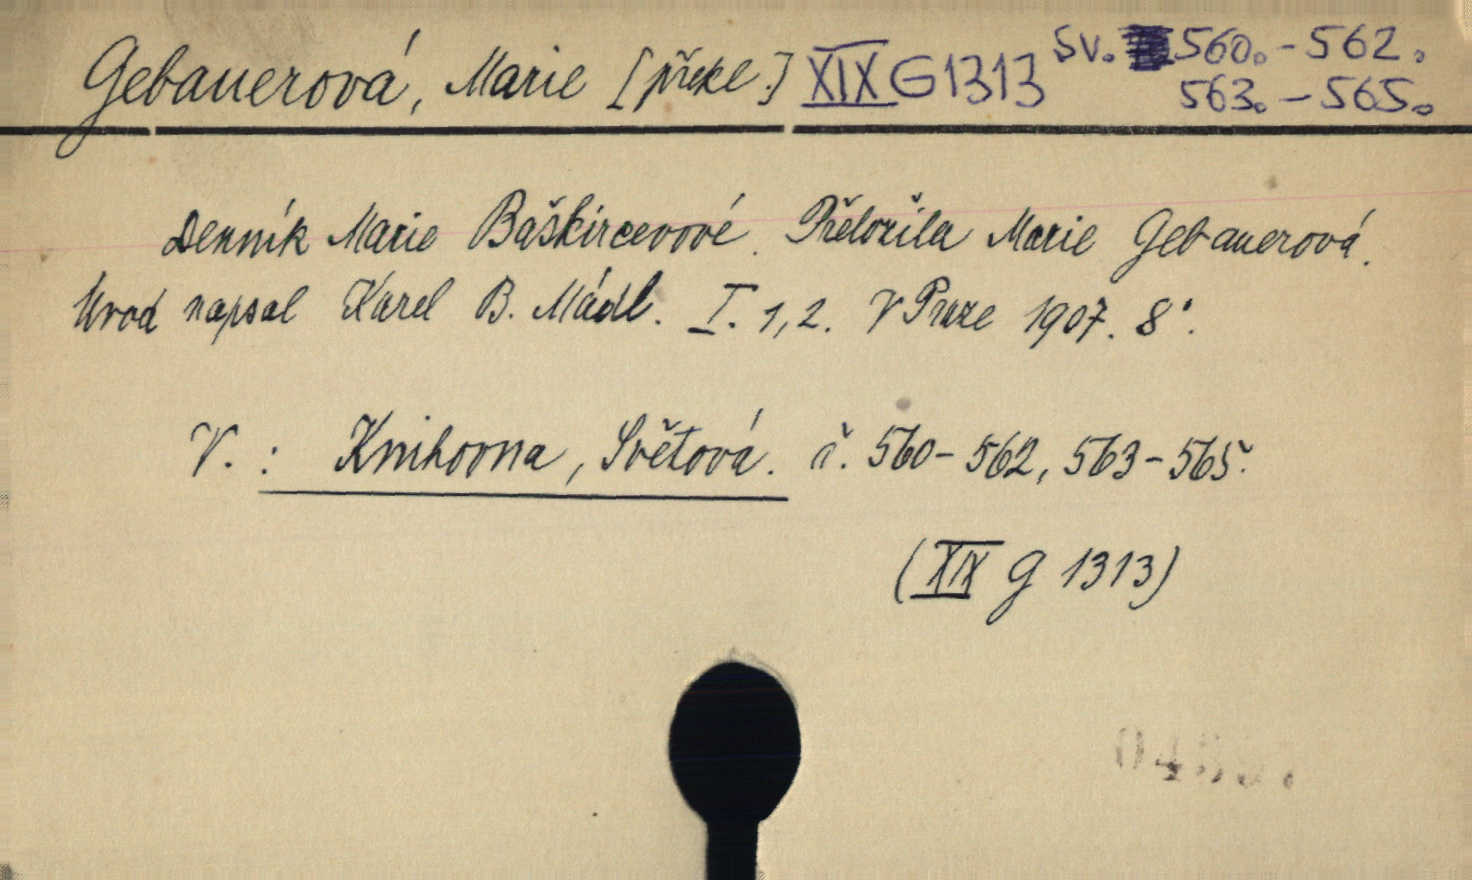 Gebauerová, Marie [překl.] XIX G 1313 sv. 560. - 562.
563. - 565.
Denník Marie Baškircevové. Přeložila Marie Gebauerová.
Úvod napsal Karel B. Mádl. I. 1, 2. V Praze 1907. 8°.
V. : Knihovna, Světová. č. 560 - 562, 563 - 565.
(XIX G 1313)